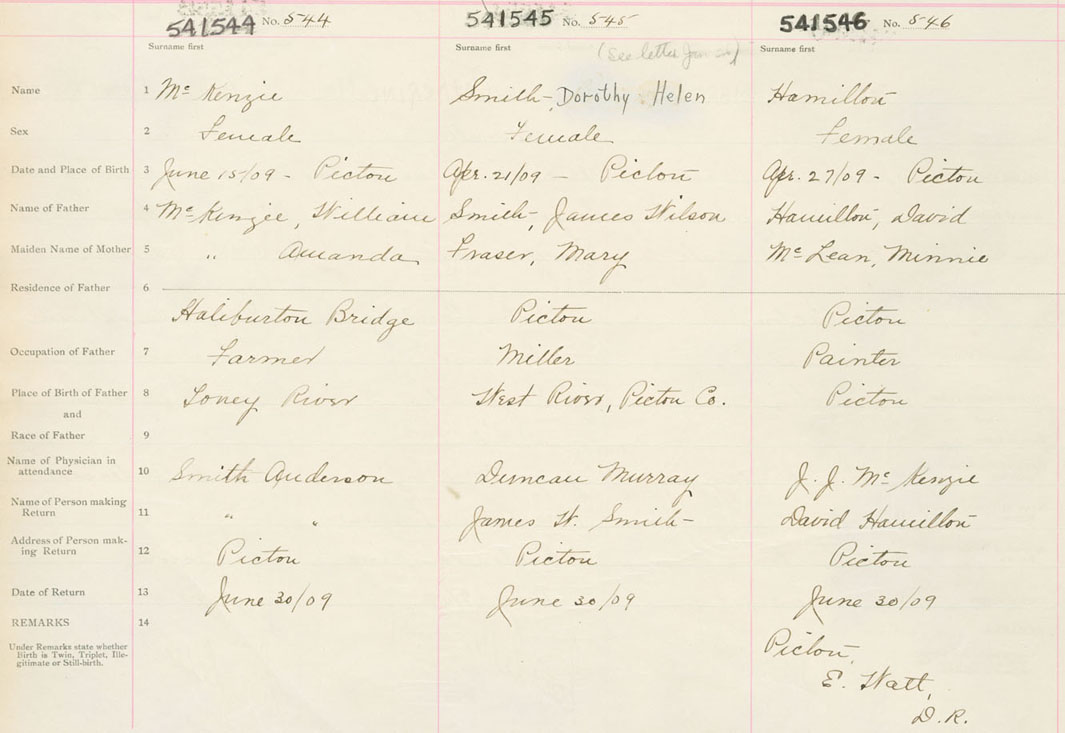 541544 No. 544 541545 No. 545 541546 No. 546
Surname first Surname first (See letter Jan ) Surname first
Name 1 Mc Kenzie Smith - Dorothy Helen Hamilton
Sex 2 Female Female Female
Date and Place of Birth 3 June 15/09 - Pictou Apr. 21/09 - Pictou Apr. 27/09 - Pictou
Name of Father 4 Mc Kenzie, William Smith, James Wilson Hamilton, David
Maiden Name of Mother 5 " Amanda Fraser, Mary Mc Lean, Minnie
Residence of Father 6
Haliburton Bridge Pictou Pictou
Occupation of Father 7 Farmer Miller Painter
Place of Birth of Father 8 Toney River West River, Pictou Co. Pictou
and
Race of Father 9
Name of Physician in
attendance 10 Smith Anderson Duncan Murray J. J. Mc Kenzie
Name of Person making
Return 11 " " James W. Smith - David Hamilton
Address of Person mak-
ing Return 12 Pictou Pictou Pictou
Date of Return 13 June 30/09 June 30/09 June 30/09
REMARKS 14
Under Remarks state whether
Birth is Twin, Triplet, Ille-
gitimate or Still-birth.
Pictou,
E. Watt,
D.R.